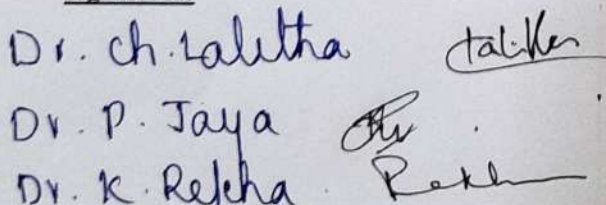 Dr. Ch. Lalitha
Dr. P. Jaya
Dr. K. Rekha Rekh